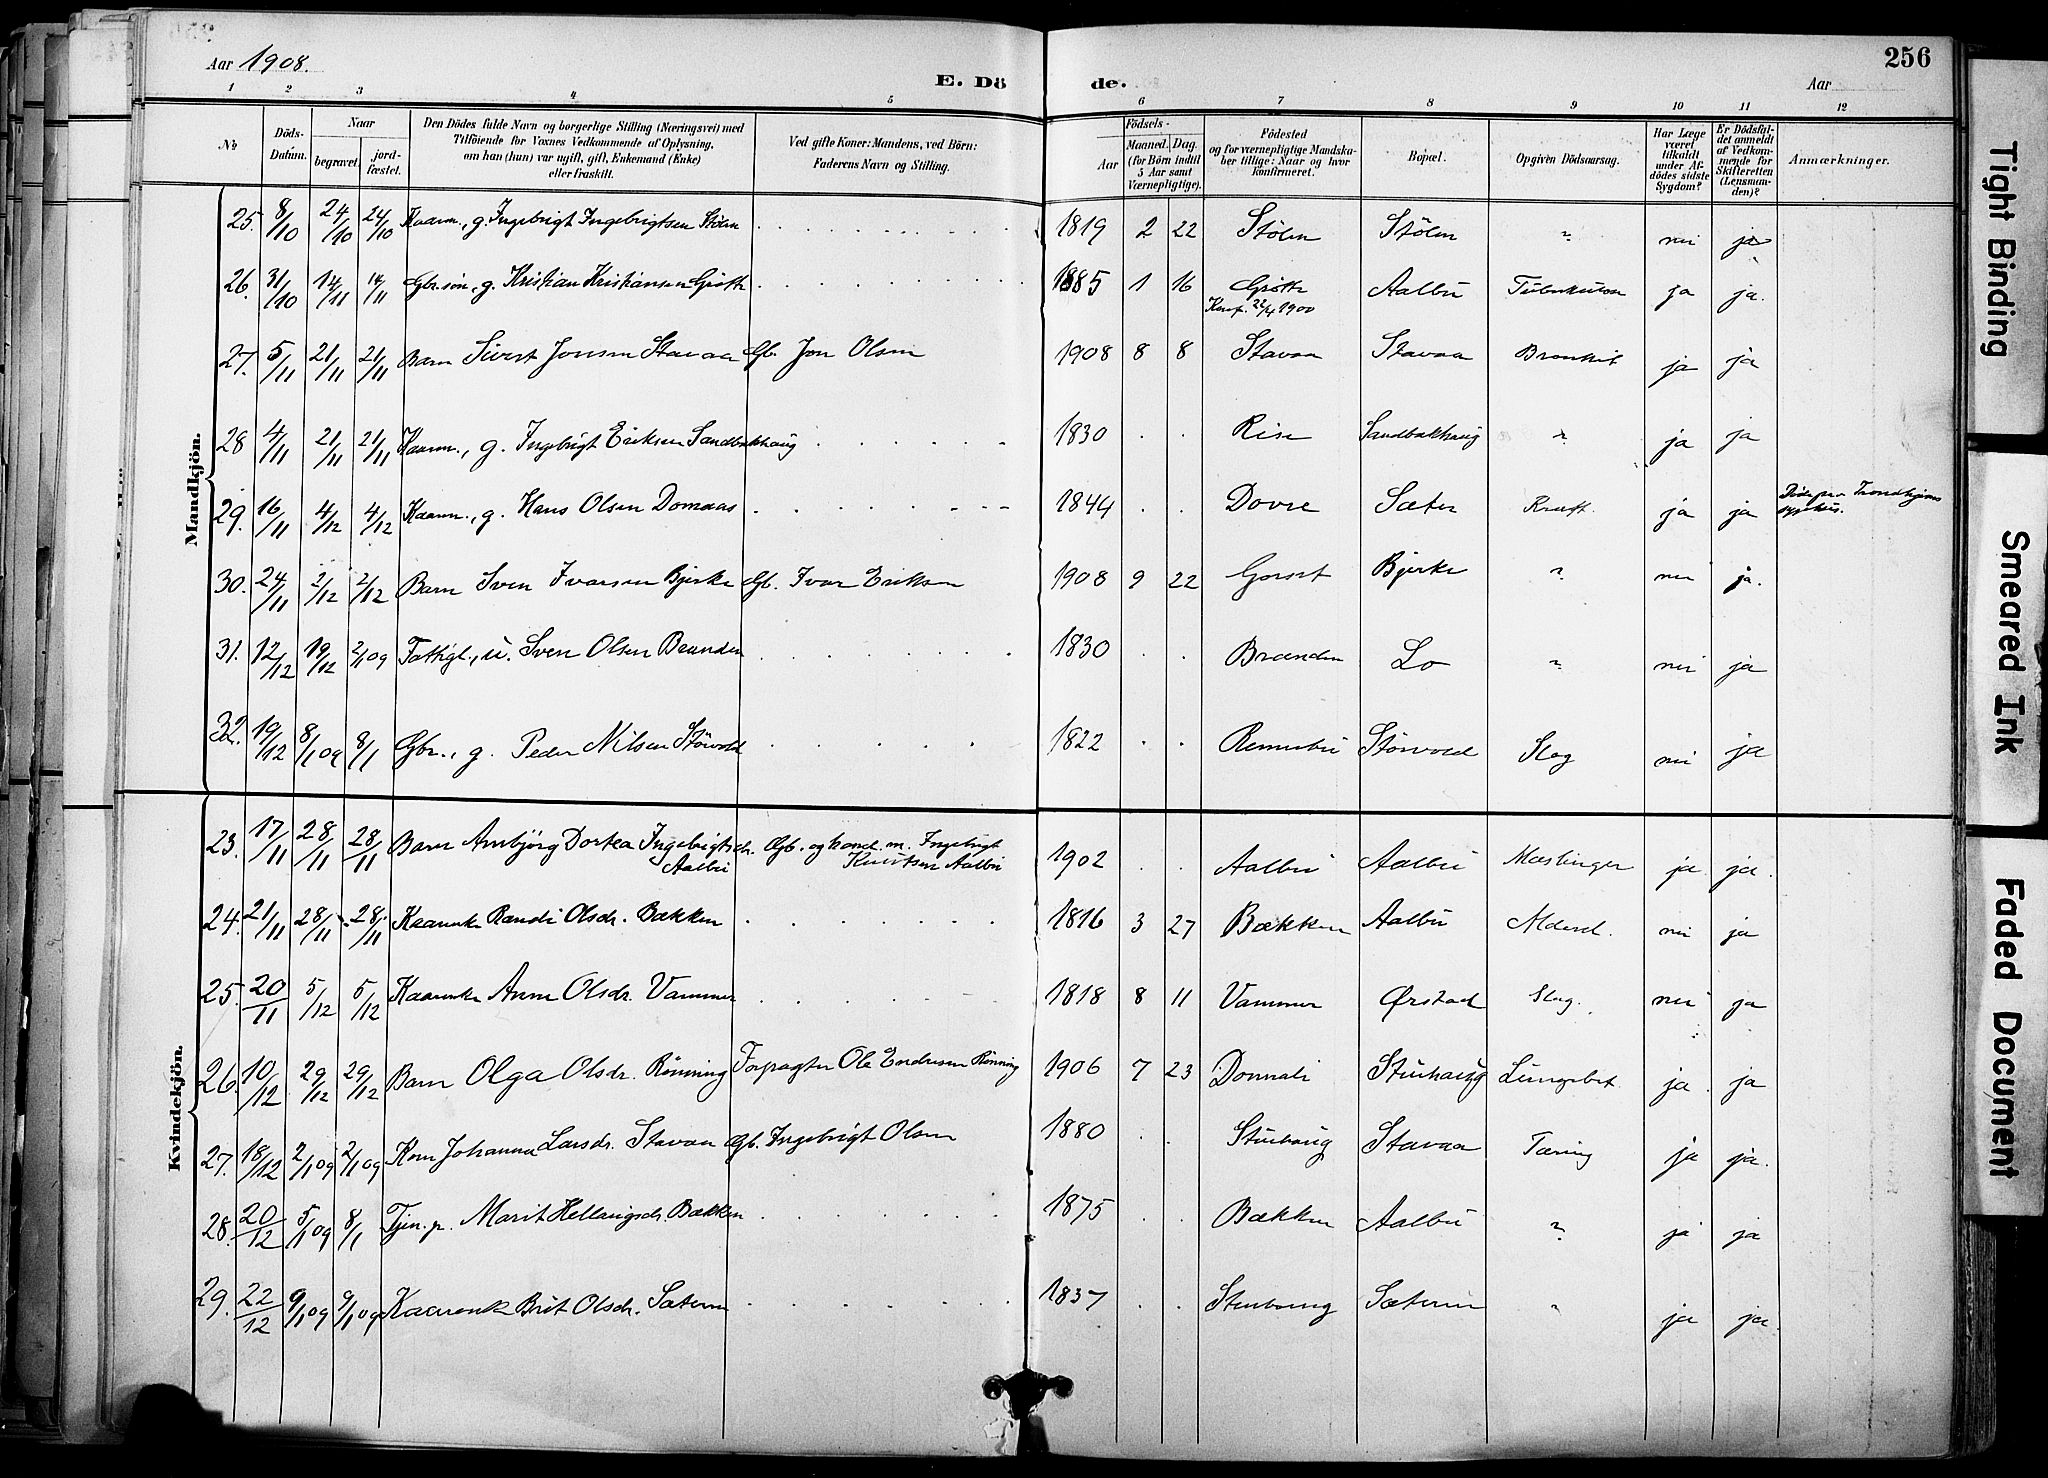 256
Aar 1908.
E. Dö de.
Aar
1 2 3 4 5 6 7 8 9 10 11 12
No
Döds-Datum.
Naar
begravet.
jordfæstet.
Den Dödes fulde Navn og borgerlige Stilling (Næringsvei) med
Tilföiende for Voxnes Vedkommende af Oplysning,
om han (hun) var ugift, gift, Enkemand (Enke)
eller fraskilt.
Ved gifte Koner: Mandens, ved Börn:
Faderens Navn og Stilling.
Födsels-
Aar
Maaned. Dag.
(for Börn indtil
5 Aar samt
Værnepligtige).
Födested
og for værnepligtige Mandskaber tillige: Naar og hvor
konfirmeret.
Bopæl.
Opgiven Dödsaarsag.
Har Læge
været
tilkaldt
under Afdödes sidste
Sygdom?
Er Dödsfaldet anmeldt
af Vedkommende for
Skifteretten
(Lensmanden)?
Anmærkninger.
Mandkjön.
25. 8/10 24/10 24/10 Kaarm., g. Ingebrigt Ingebrigtsen Stölen 1819 2 22 Stölen Stölen " nei ja
26. 31/10 14/11 14/11 Gbr.sön, g. Kristian Kristiansen Grötte 1885 1 16 Grötte Aalbu Tuberkulose ja ja.
Konf. 22/4 1900
27. 5/11 21/11 21/11 Barn Sivert Jonsen Stavaa Gb. Jon Olsen 1908 8 8 Stavaa Stavaa Bronkit ja ja
28 4/11 21/11 21/11 Kaarm., g. Ingebrigt Eriksen Sandbækhaug 1830 Rise Sandbækhaug " ja ja
29. 16/11 4/12 4/12 Kaarm., g. Hans Olsen Domaas 1844 Dovre Sæter Kræft. ja ja Döde paa Trondhjems
sygehus.
30. 24/11 2/12 2/12 Barn Sven Ivarsen Bjerke Gb. Ivar Eriksen 1908 9 22 Gorset Bjerke " nei ja.
31. 12/12 19/12 2/1 09 Fattigl., u. Sven Olsen Brænden 1830 Brænden Lo " nei ja
32. 19/12 8/1 09 8/1 Gbr., g. Peder Nilsen Störvold 1822 Rennebu Störvold Slag nei ja
Kvindekjön.
23. 17/11 28/11 28/11 Barn Ambjörg Dortea Ingebrigtsdr. Gb. og hand.m. Ingebrigt 1902 Aalbu Aalbu Mæslinger ja ja.
Aalbu Knutsen Aalbu
24. 21/11 28/11 28/11 Kaarenke Randi Olsdr. Bækken 1816 3 27 Bækken Aalbu Aldersd. nei ja
25. 20/11 5/12 5/12 Kaarenke Anne Olsdr. Vammer 1818 8 11 Vammer Ørstad Slag. nei ja
26. 10/12 29/12 29/12 Barn Olga Olsdr. Rönning Forpagter Ole Endresen Rönning 1906 7 23 Donnali Stuehaug Lungebet. ja ja
27. 18/12 2/1 09 2/1 09 Kone Johanna Larsdr. Stavaa Gb. Ingebrigt Olsen 1880 Stuehaug Stavaa Tæring ja ja.
28. 20/12 5/1 09 8/1 Tjen.p. Marit Hellaugsdr. Bækken 1875 Bækken Aalbu " ja ja
29. 22/12 9/1 09 9/1 09 Kaarenk Brit Olsdr. Sæteren 1837 Stenboug Sæteren " ja ja.
Tight Binding
Smeared Ink
Faded Document